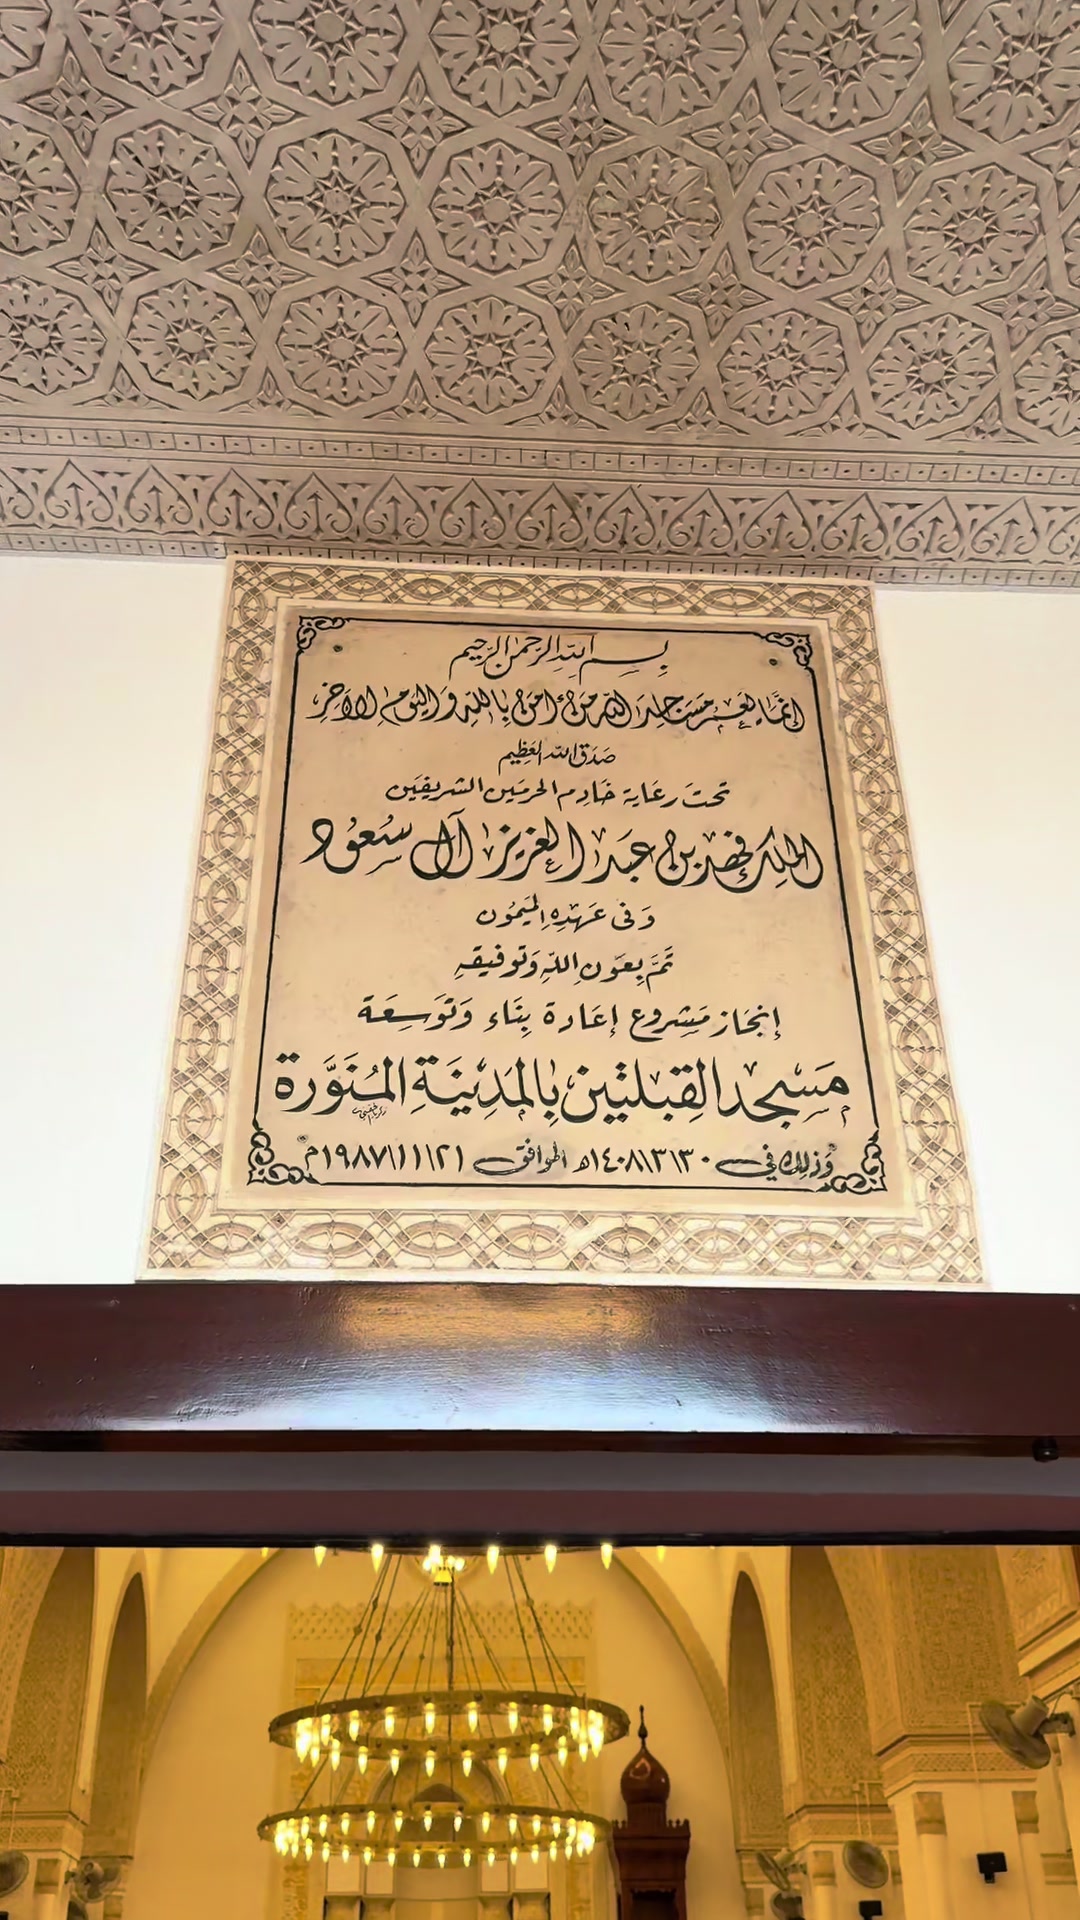 بسم الله الرحمن الرحيم
إنما يعمر مساجد الله من ءامن بالله واليوم الآخر
صدق الله العظيم
تحت رعاية خادم الحرمين الشريفين
الملك فهد بن عبد العزيز آل سعود
وفى عهده الميمون
تم بعون الله وتوفيقه
إنجاز مشروع إعادة بناء وتوسعة
مسجد القبلتين بالمدينة المنورة
وذلك في ١٤٠٨/٣/٣٠هـ الموافق ١٩٨٧/١١/٢١م